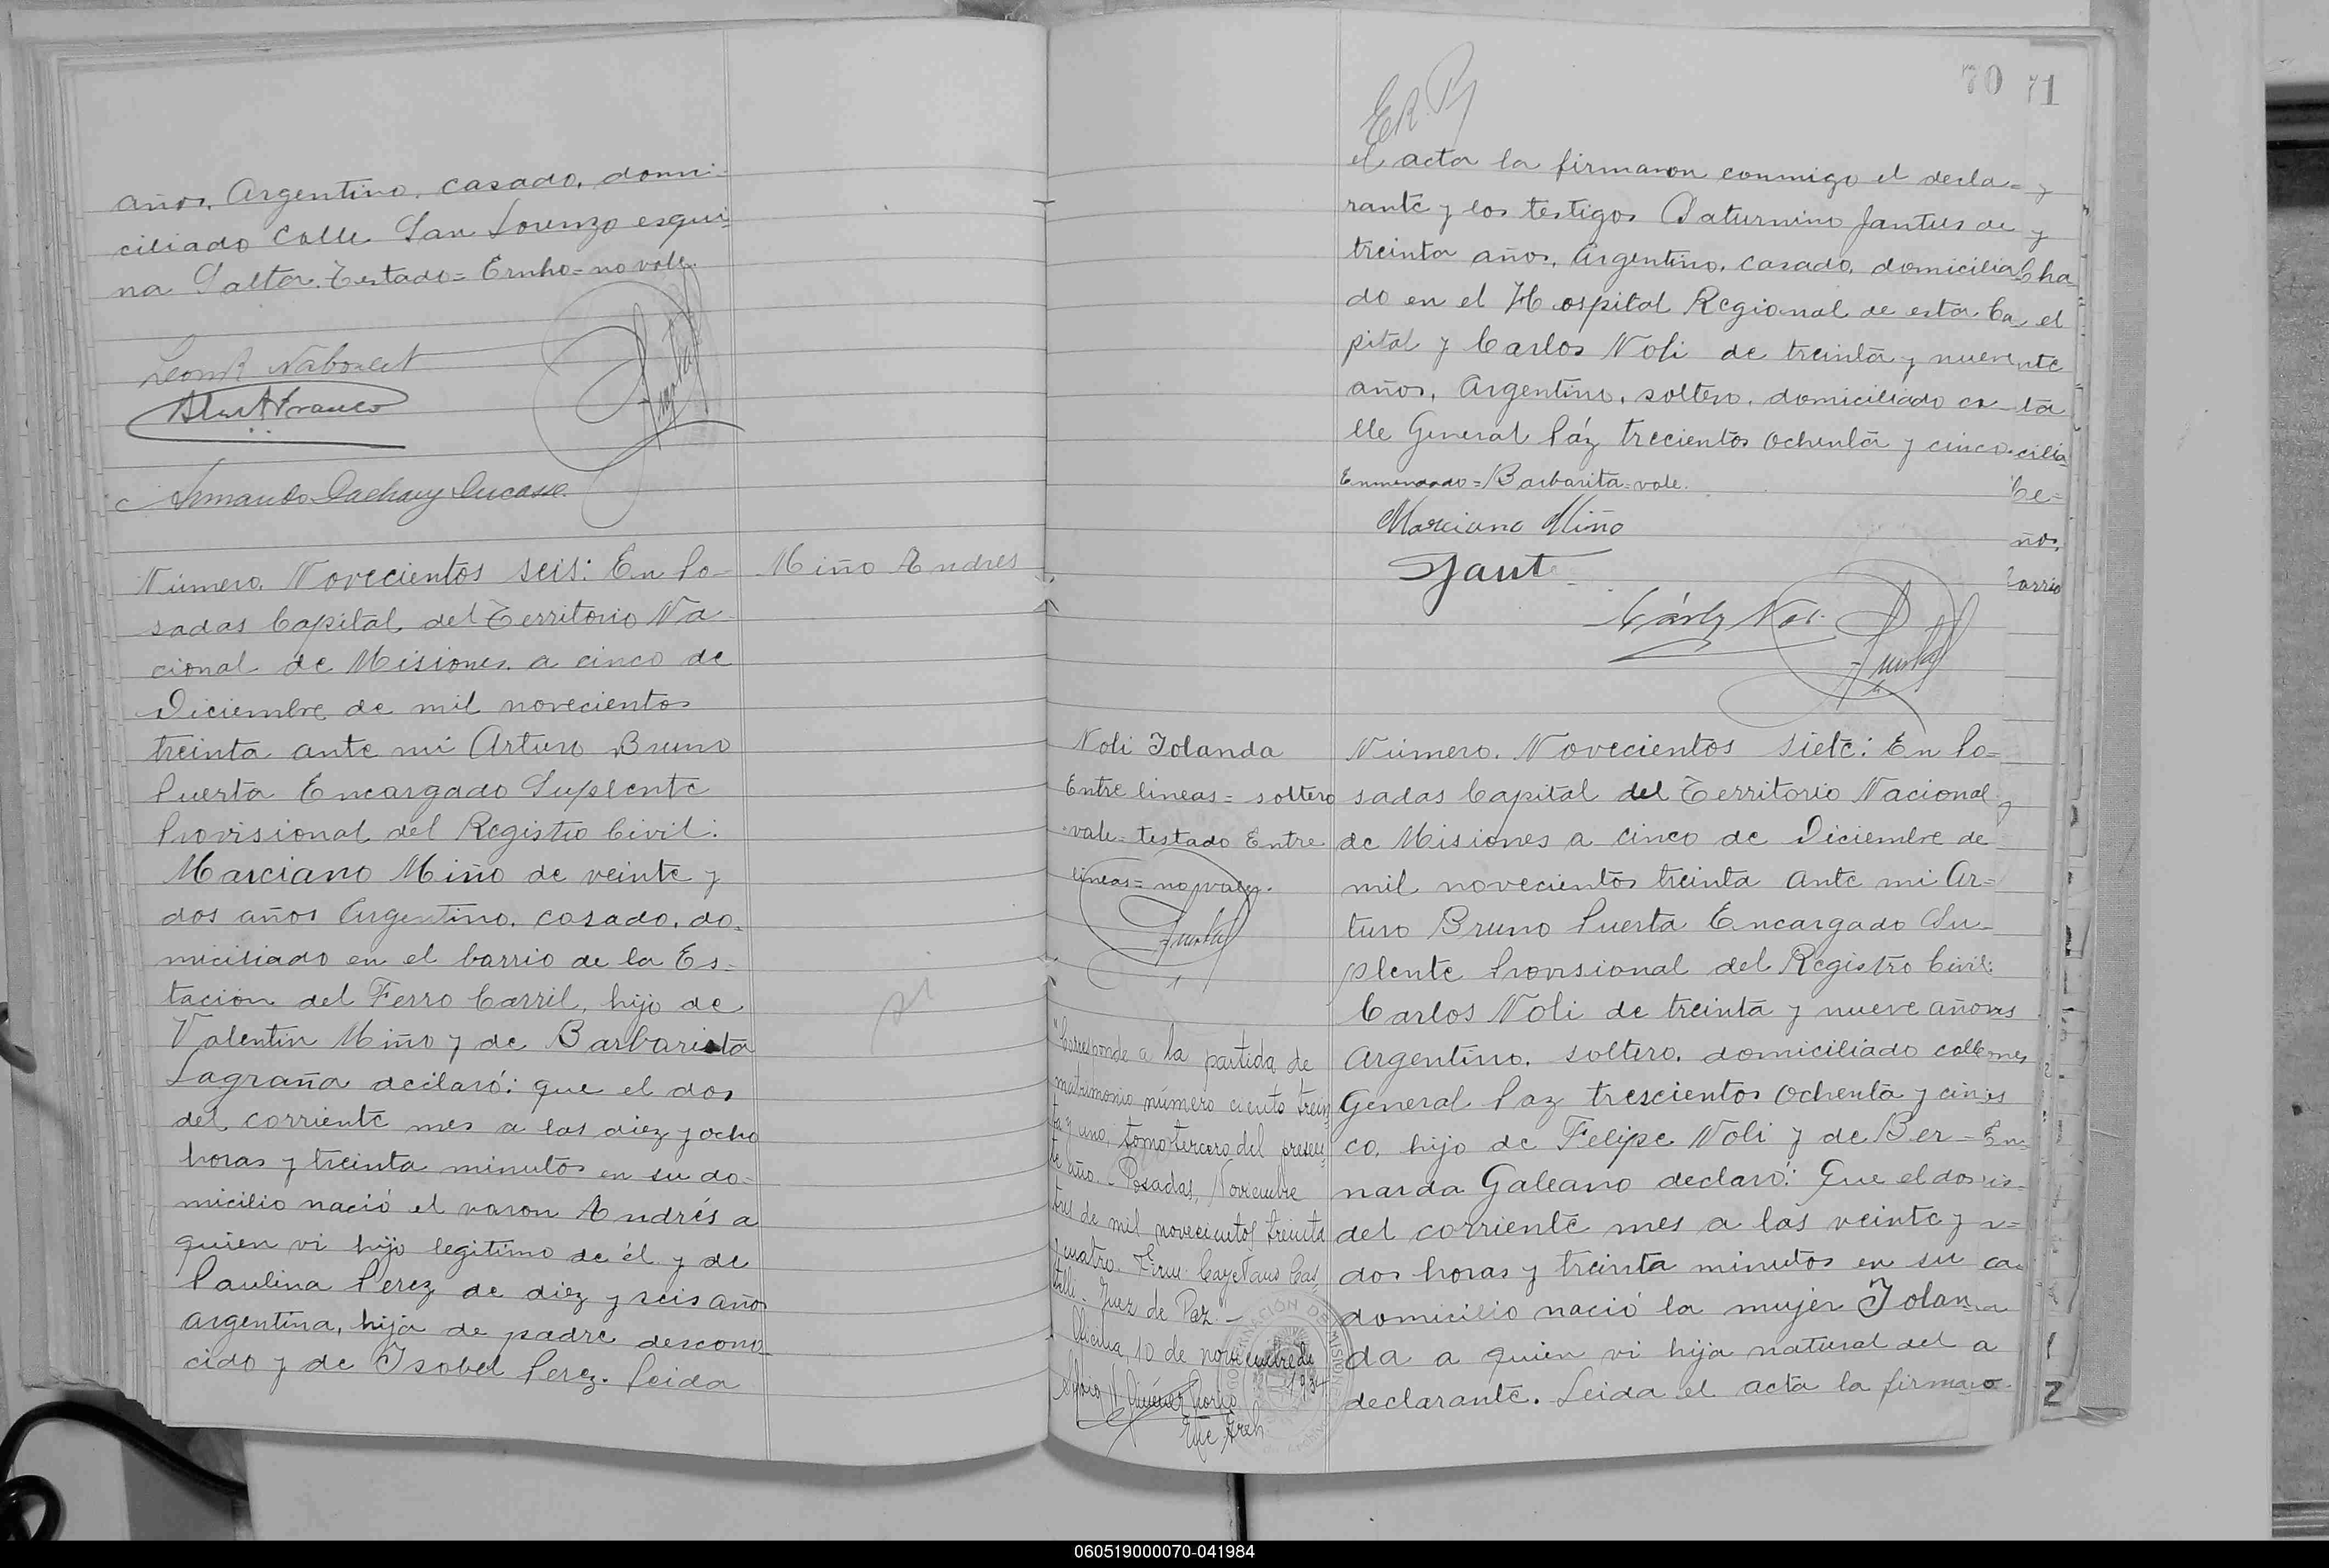 años, Argentino, casado, domi-
ciliado Calle San Lorenzo esqui-
na Salta. Testado=Ernho=no vale.
Número. Novecientos seis: En Po-
sadas Capital del Territorio Na-
cional de Misiones a cinco de
Diciembre de mil novecientos
treinta ante mi Arturo Bruno
Puerta Encargado Suplente
Provisional del Registro Civil:
Marciano Miño de veinte y
dos años Argentino, casado, do-
miciliado en el barrio de la Es-
tación del Ferro Carril, hijo de
Valentin Miño y de Barbarita
Lagraña declaró: que el dos
del corriente mes a las diez y ocho
horas y treinta minutos en su do-
micilio nació el varon Andrés a
quien vi hijo legitimo de él y de
Paulina Perez de diez y seis años
argentina, hija de padre descono-
cido y de Isabel Perez. Leida
Miño Andres
70 71
el acta la firmaron conmigo el decla=
rante y los testigos Saturnino Jantus de
treinta años, Argentino, casado, domicilia
do en el Hospital Regional de esta Ca
pital y Carlos Noli de treinta y nueve
años, Argentino, soltero, domiciliado ca-
lle General Páz trecientos ochenta y cinco.
Enmendado=Barbarita=vale.
Marciano Miño
Noli Iolanda
Entre lineas= soltero
vale= testado Entre
lineas= no vale.
"Corresponde a la partida de
matrimonio número ciento trein
ta y uno, tomo tercero del presen
te año.- Posadas, Noviembre
tres de mil novecientos treinta
y cuatro. Firm. Cayetano Cas
telli- Juez de Paz.-
Oficina, 10 de noviembre de
Número. Novecientos siete: En Po=
sadas Capital del Territorio Nacional
de Misiones a cinco de Diciembre de
mil novecientos treinta ante mi Ar=
turo Bruno Puerta Encargado Su-
plente Provisional del Registro Civil:
Carlos Noli de treinta y nueve años
Argentino, soltero, domiciliado calle
General Paz trescientos ochenta y cin
co, hijo de Felipe Noli y de Ber=
narda Galeano declaró: Que el dos
del corriente mes a las veinte y
dos horas y treinta minutos en su
domicilio nació la mujer Iolan
da a quien vi hija natural del
declarante. Leida el acta la firma
060519000070-041984